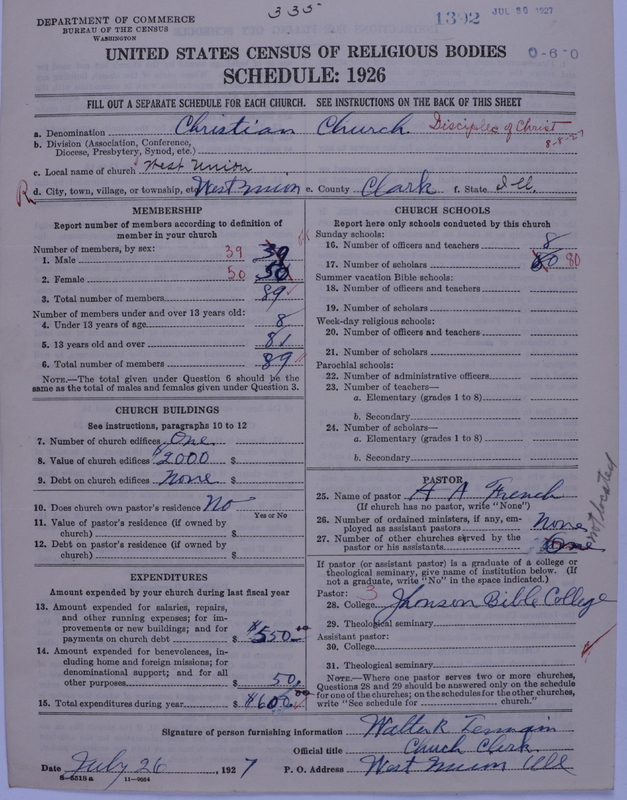 335
1392 JUL 29 1927
DEPARTMENT OF COMMERCE
BUREAU OF THE CENSUS
WASHINGTON
UNITED STATES CENSUS OF RELIGIOUS BODIES
0-6-0
SCHEDULE: 1926
FILL OUT A SEPARATE SCHEDULE FOR EACH CHURCH. SEE INSTRUCTIONS ON THE BACK OF THIS SHEET
a. Denomination Christian Church. Disciples of Christ
b. Division (Association, Conference, Diocese, Presbytery, Synod, etc.)
8-8-27
c. Local name of church West Union
R d. City, town, village, or township, etc. West Union e. County Clark f. State Ill.
MEMBERSHIP
Report number of members according to definition of
member in your church
Number of members, by sex:
1. Male 39 39
2. Female 50 50
3. Total number of members 89
Number of members under and over 13 years old:
4. Under 13 years of age 8
5. 13 years old and over 81
6. Total number of members 89
NOTE.—The total given under Question 6 should be the
same as the total of males and females given under Question 3.
CHURCH BUILDINGS
See instructions, paragraphs 10 to 12
7. Number of church edifices One
8. Value of church edifices $2000 $
9. Debt on church edifices None $
10. Does church own pastor's residence No
Yes or No
11. Value of pastor's residence (if owned by
church) $
12. Debt on pastor's residence (if owned by
church) $
EXPENDITURES
Amount expended by your church during last fiscal year
13. Amount expended for salaries, repairs,
and other running expenses; for im-
provements or new buildings; and for
payments on church debt $ $550.00
14. Amount expended for benevolences, in-
cluding home and foreign missions; for
denominational support; and for all
other purposes $ 50.
15. Total expenditures during year $ $600.00
CHURCH SCHOOLS
Report here only schools conducted by this church
Sunday schools:
16. Number of officers and teachers 8
17. Number of scholars 80 80
Summer vacation Bible schools:
18. Number of officers and teachers
19. Number of scholars
Week-day religious schools:
20. Number of officers and teachers
21. Number of scholars
Parochial schools:
22. Number of administrative officers
23. Number of teachers—
a. Elementary (grades 1 to 8)
b. Secondary
24. Number of scholars—
a. Elementary (grades 1 to 8)
b. Secondary
PASTOR
25. Name of pastor H A French
(If church has no pastor, write "None")
26. Number of ordained ministers, if any, em-
ployed as assistant pastors None
27. Number of other churches served by the
pastor or his assistants
not located
If pastor (or assistant pastor) is a graduate of a college or
theological seminary, give name of institution below. (If
not a graduate, write "No" in the space indicated.)
Pastor: 3
28. College Jhonson Bible College
29. Theological seminary
Assistant pastor:
30. College
31. Theological seminary
NOTE.—Where one pastor serves two or more churches,
Questions 28 and 29 should be answered only on the schedule
for one of the churches; on the schedules for the other churches,
write "See schedule for church."
Signature of person furnishing information Walter R
Official title Chuch Clerk.
Date July 26, 1927 P. O. Address West Union Ill
8-5518a 11-9054